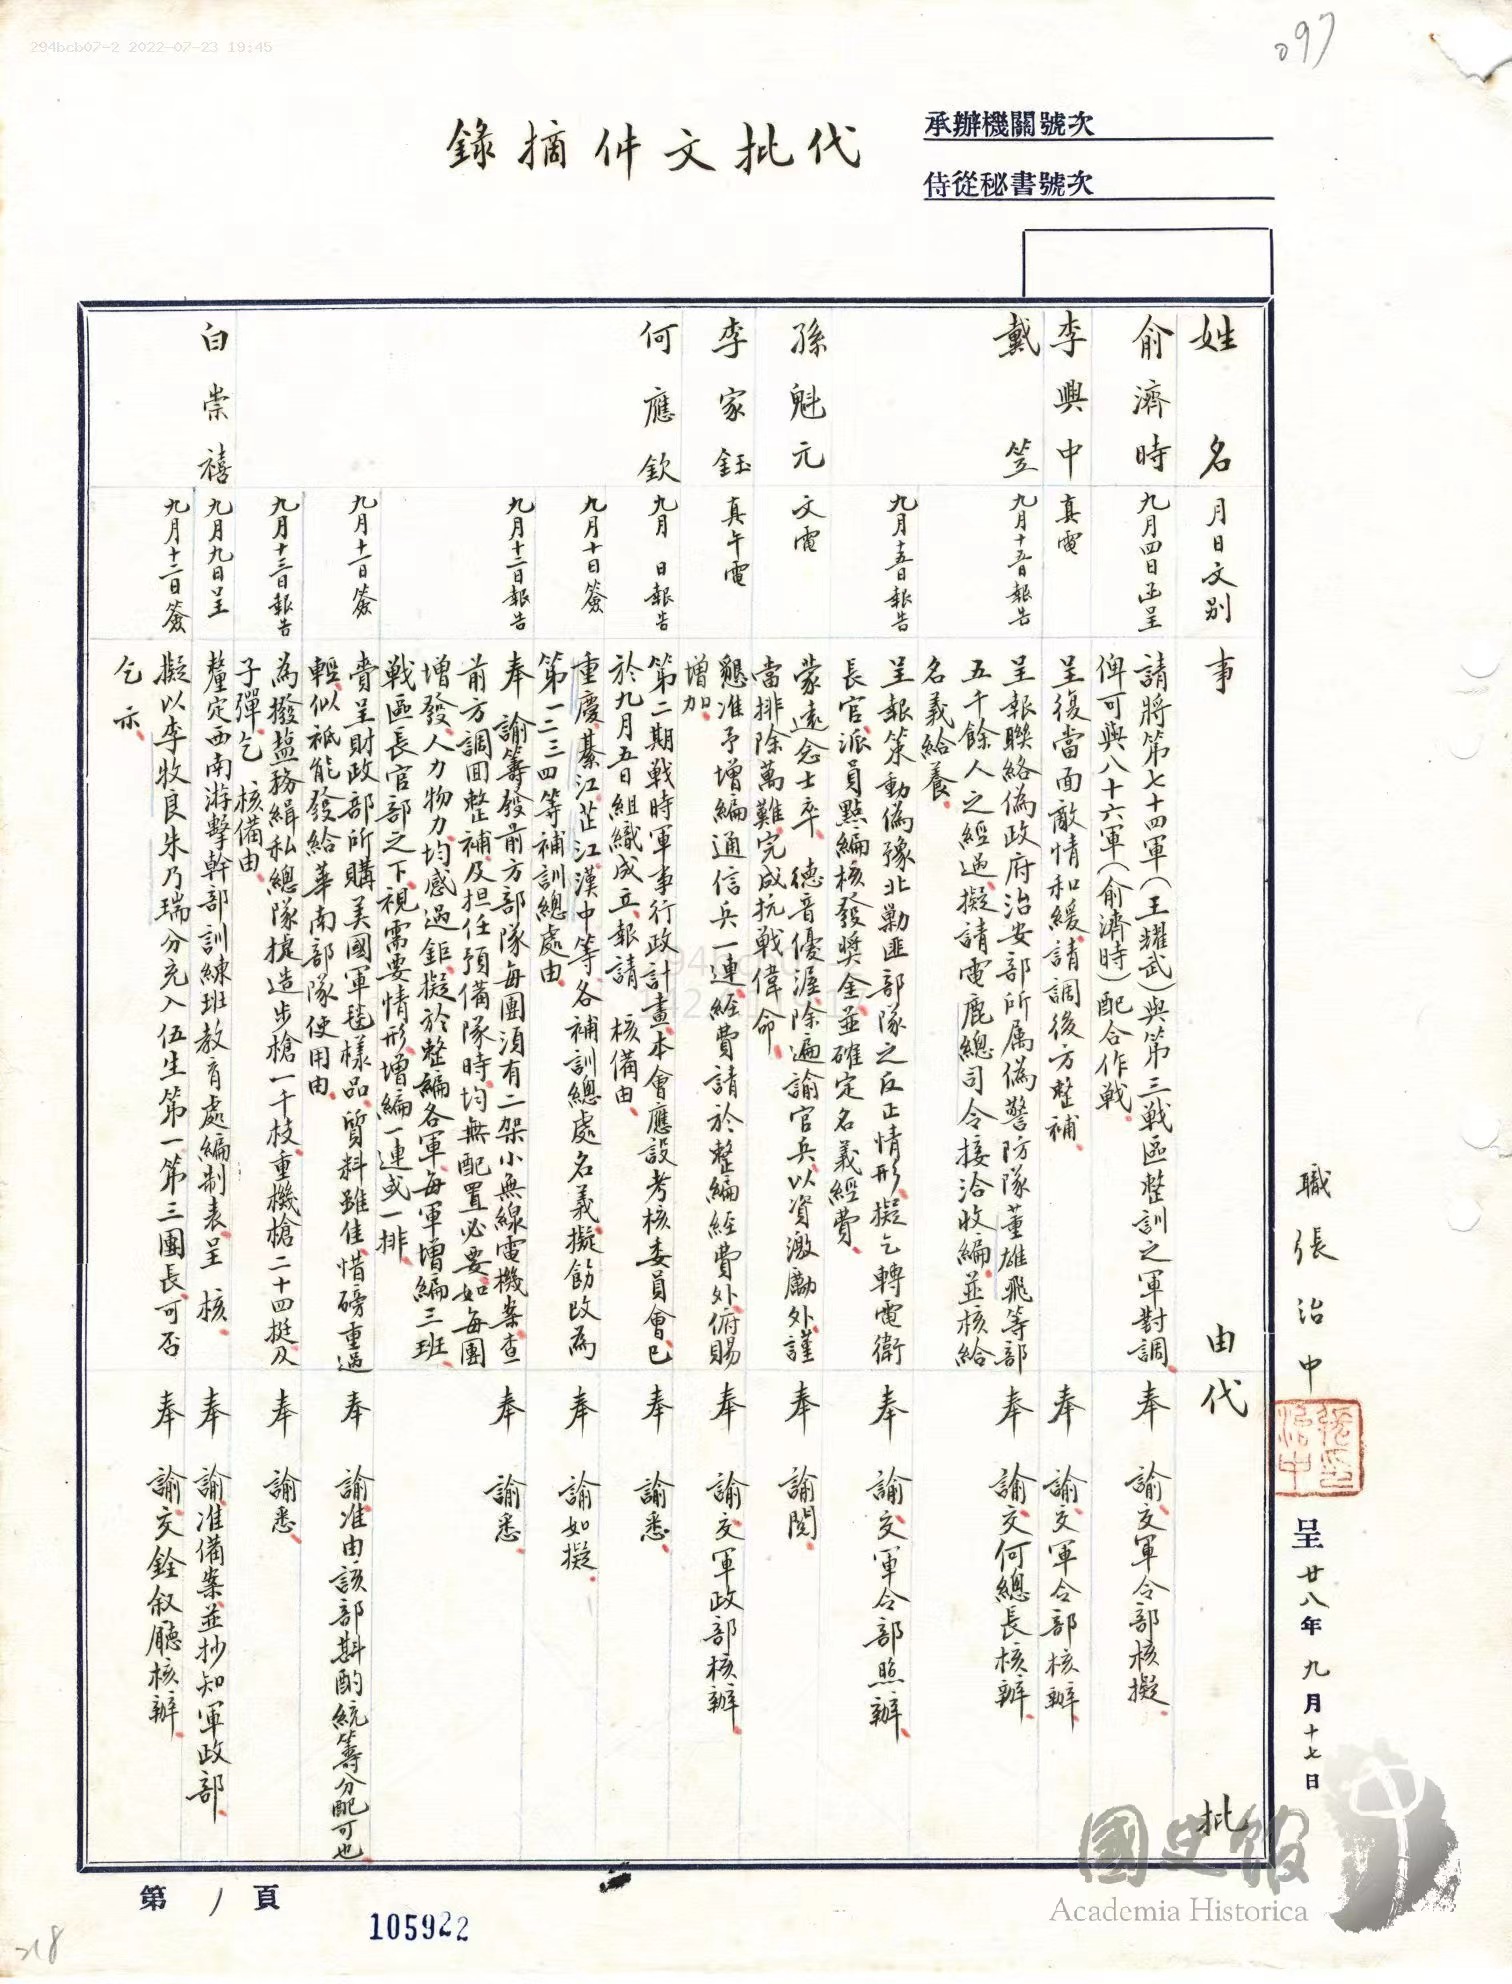 294bcb07-2 2022-07-23 19:45
097
承辦機關號次
侍從秘書號次
代批文件摘錄
職張治中
呈廿八年九月十七日
姓名
月日文別
事由
代批
俞濟時
九月四日函呈
請將第七十四軍(王耀武)與第三戰區整訓之軍對調、
俾可與八十六軍(俞濟時)配合作戰、
奉 諭、交軍令部核擬、
李興中
真電
呈復當面敵情和緩、請調後方整補、
奉 諭、交軍令部核辦、
戴笠
九月十五日報告
呈報聯絡偽政府治安部所屬偽警防隊董雄飛等部
五千餘人之經過、擬請電鹿總司令接洽收編、並核給
名義給養、
奉 諭、交何總長核辦、
九月十五日報告
呈報策動偽豫北勦匪部隊之反正情形、擬乞轉電衛
長官、派員點編、核發獎金、並確定名義經費、
奉 諭、交軍令部照辦、
孫魁元
文電
蒙遠念士卒、德音優渥、除遍諭官兵、以資激勵外、謹
當排除萬難、完成抗戰偉命、
奉 諭閱、
李家鈺
真午電
懇准予增編通信兵一連、經費請於整編經費外、俯賜
增加、
奉 諭、交軍政部核辦、
何應欽
九月 日報告
第二期戰時軍事行政計畫、本會應設考核委員會、已
於九月五日組織成立、報請 核備由、
奉 諭悉、
九月十日簽
重慶、綦江、芷江、漢中等各補訓總處名義、擬飭改為
第一二三四等補訓總處由、
奉 諭如擬、
九月十二日報告
奉 諭籌發前方部隊每團須有二架小無線電機案、查
前方調回整補及担任預備隊時、均無配置必要、如每團
增發、人力物力、均感過鉅、擬於整編各軍、每軍增編三班、
戰區長官部之下、視需要情形、增編一連或一排、
奉 諭悉、
九月十一日簽
賫呈財政部所購美國軍毯樣品、質料雖佳、惜磅重過
輕、似祗能發給華南部隊使用由、
奉 諭、准由該部斟酌統籌分配可也、
九月十三日報告
為撥鹽務緝私總隊捷造步槍一千枝、重機槍二十四挺及
子彈、乞 核備由、
奉 諭悉、
白崇禧
九月九日呈
釐定西南游擊幹部訓練班教育處編制表、呈 核、
奉 諭、准備案、並抄知軍政部、
九月十二日簽
擬以李牧良朱乃瑞分充入伍生第一第三團長、可否
乞示、
奉 諭、交銓敘廳核辦、
第1頁
105922
國史館
Academia Historica